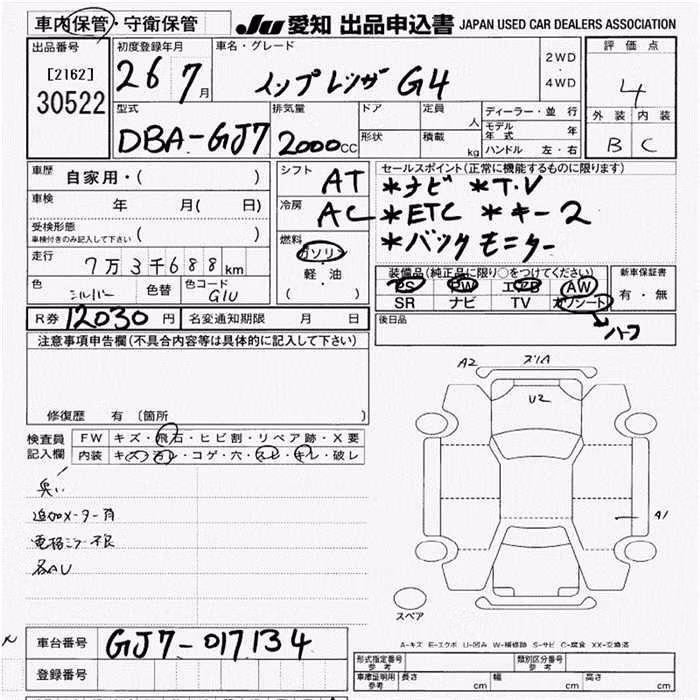 車内保管・守衛保管
JU 愛知 出品申込書 JAPAN USED CAR DEALERS ASSOCIATION
出品番号
[2162]
30522
初度登録年月
26 7月
車名・グレード
インプレッサ G4
2WD
・
4WD
評価点
4
外装 内装
B C
型式
DBA-GJ7
排気量
2000cc
ドア
形状
定員 人
積載 kg
ディーラー・並行
モデル年式 年
ハンドル 左・右
車歴 自家用・( )
車検 年 月( 日)
受検形態
車検付きのみ記入して下さい ( )
走行 7万3千688km
色 シルバー 色替 色コード G1U
シフト AT
冷房 AC
燃料
ガソリン
・
軽・油
( )
セールスポイント(正常に機能するものに限ります)
*ナビ *T.V
*ETC *キー2
*バックモニター
装備品(純正品に限り○をつけてください)
PS PW エアB AW
SR ナビ TV カワシート
→ハーフ
新車保証書
有・無
R券 12030円 名変通知期限 月 日
後日品
注意事項申告欄(不具合内容等は具体的に記入して下さい)
修復歴 有 (箇所
検査員記入欄
FW キズ・飛石・ヒビ割・リペア跡・X要
内装 キズ・汚レ・コゲ・穴・スレ・キレ・破レ
臭い
追加メーター有
電格ミラー不良
各AU
A2 スリA
U2
A1
スペア
A-キズ E-エクボ U-凹み W-補修跡 S-サビ C-腐食 XX-交換済
車台番号 GJ7-017134
登録番号
型式指定番号 参考
類別区分番号 参考
車庫証明用 参考 長さ cm 幅 cm 高さ cm